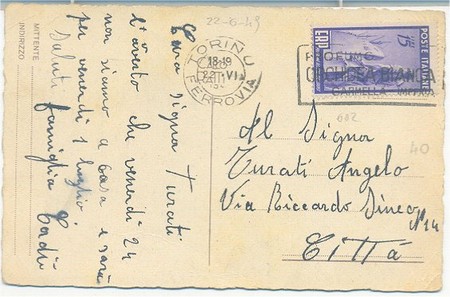 MITTENTE
INDIRIZZO
Cara Signora Turati
l'avverto che venerdì 24
non siamo a casa e sarà
per venerdì 1 luglio
Saluti famiglia
22-6-49
TORINO
18-19
22 VI
FERROVIA
ERP
15
POSTE ITALIANE
PROFUMO
ORCHIDEA BIANCA
602
40
Al Signor
Turati Angelo
Via Riccardo Sineo
N 14
Città